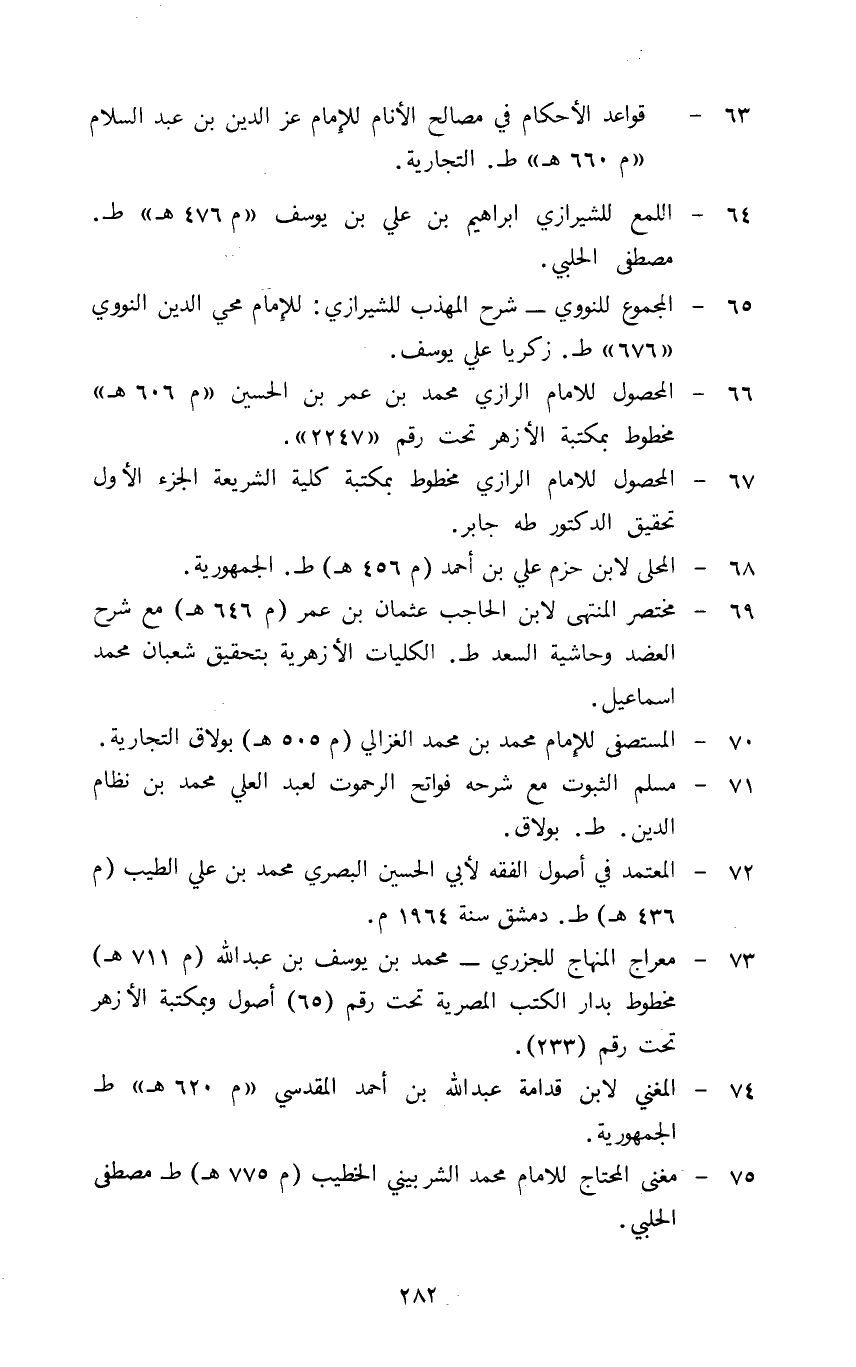 ٦٣ - قواعد الأحكام في مصالح الأنام للإمام عز الدين بن عبد السلام
«م ٦٦٠ هـ» ط. التجارية.
٦٤ - اللمع للشيرازي ابراهيم بن علي بن يوسف «م ٤٧٦ هـ» ط.
مصطفى الحلبي.
٦٥ - المجموع للنووي — شرح المهذب للشيرازي: للإمام محي الدين النووي
«٦٧٦» ط. زكريا علي يوسف.
٦٦ - المحصول للامام الرازي محمد بن عمر بن الحسين «م ٦٠٦ هـ»
مخطوط بمكتبة الأزهر تحت رقم «٢٢٤٧».
٦٧ - المحصول للامام الرازي مخطوط بمكتبة كلية الشريعة الجزء الأول
تحقيق الدكتور طه جابر.
٦٨ - المحلى لابن حزم علي بن أحمد (م ٤٥٦ هـ) ط. الجمهورية.
٦٩ - مختصر المنتهى لابن الحاجب عثمان بن عمر (م ٦٤٦ هـ) مع شرح
العضد وحاشية السعد ط. الكليات الأزهرية بتحقيق شعبان محمد
اسماعيل.
٧٠ - المستصفى للإمام محمد بن محمد الغزالي (م ٥٠٥ هـ) بولاق التجارية.
٧١ - مسلم الثبوت مع شرحه فواتح الرحموت لعبد العلي محمد بن نظام
الدين. ط. بولاق.
٧٢ - المعتمد في أصول الفقه لأبي الحسين البصري محمد بن علي الطيب (م
٤٣٦ هـ) ط. دمشق سنة ١٩٦٤ م.
٧٣ - معراج المنهاج للجزري — محمد بن يوسف بن عبدالله (م ٧١١ هـ)
مخطوط بدار الكتب المصرية تحت رقم (٦٥) أصول وبمكتبة الأزهر
تحت رقم (٢٣٣).
٧٤ - المغني لابن قدامة عبدالله بن أحمد المقدسي «م ٦٢٠ هـ» ط
الجمهورية.
٧٥ - مغنى المحتاج للامام محمد الشربيني الخطيب (م ٧٧٥ هـ) ط مصطفى
الحلبي.
٢٨٢